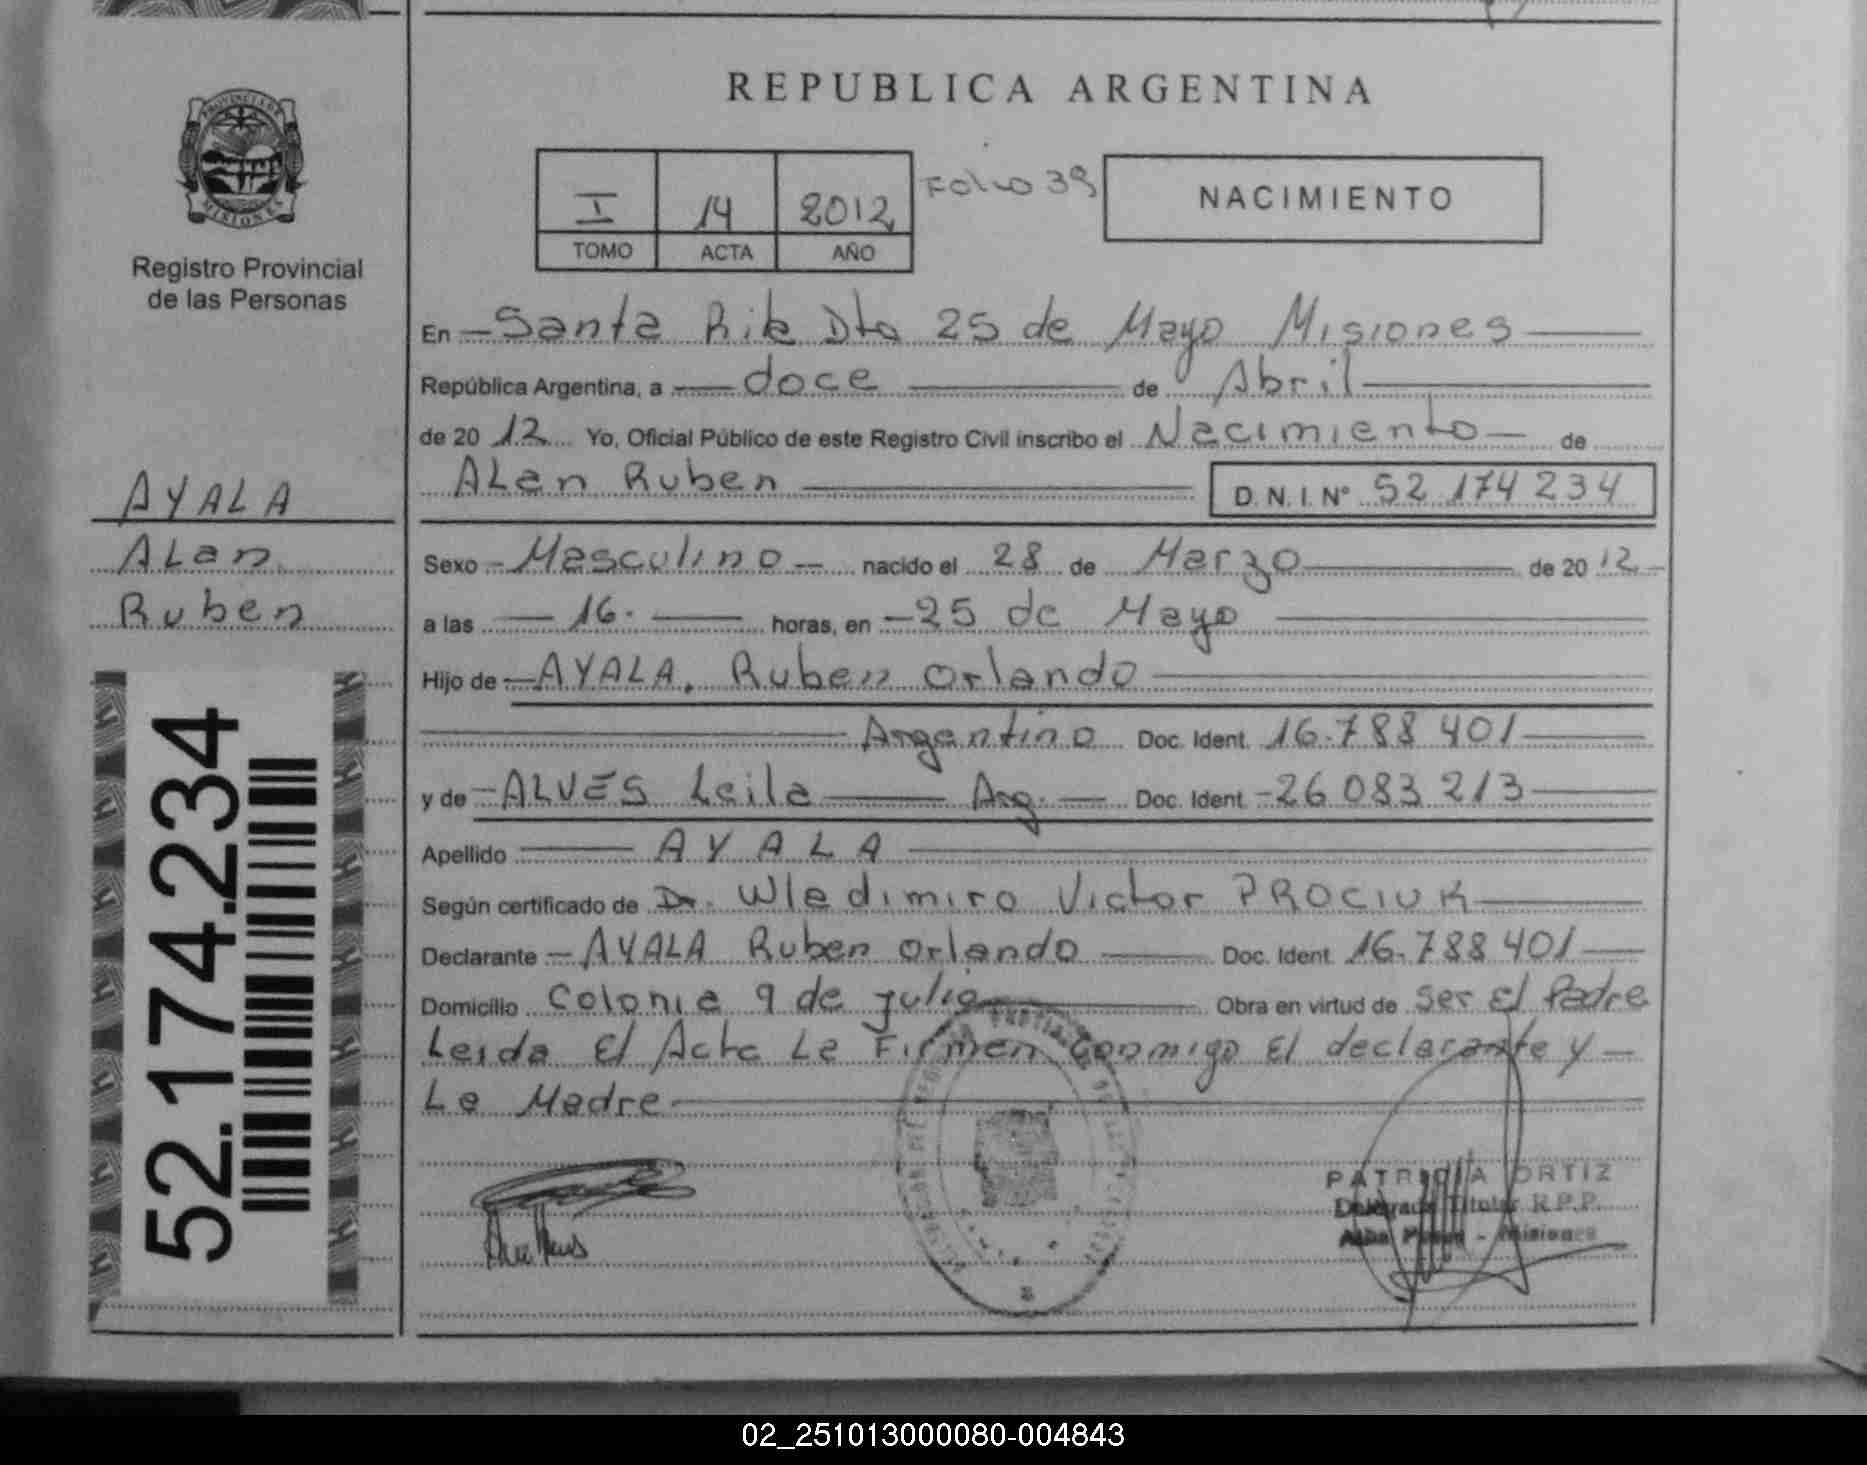 REPUBLICA ARGENTINA
PROVINCIA DE
MISIONES
Registro Provincial
de las Personas
I 14 2012
TOMO ACTA AÑO
Folio 39
NACIMIENTO
En Santa Rita Dto 25 de Mayo Misiones
República Argentina, a doce de Abril
de 2012 Yo, Oficial Público de este Registro Civil inscribo el Nacimiento de
Alan Ruben D.N.I. Nº 52 174 234
AYALA
Alan
Ruben
Sexo Masculino nacido el 28 de Marzo de 2012
a las 16. horas, en 25 de Mayo
Hijo de AYALA, Ruben Orlando
Argentino Doc. Ident. 16.788 401
y de ALVES Leila Arg. Doc. Ident 26 083 213
Apellido AYALA
Según certificado de Dr. Wladimiro Victor PROCIUK
Declarante AYALA Ruben Orlando Doc. Ident. 16.788 401
Domicilio Colonia 9 de julio Obra en virtud de ser El Padre
Leida El Acta La Firman conmigo El declarante y
La Madre
52.174.234
PATRICIA ORTIZ
Delegada Titular R.P.P.
Misiones
02_251013000080-004843